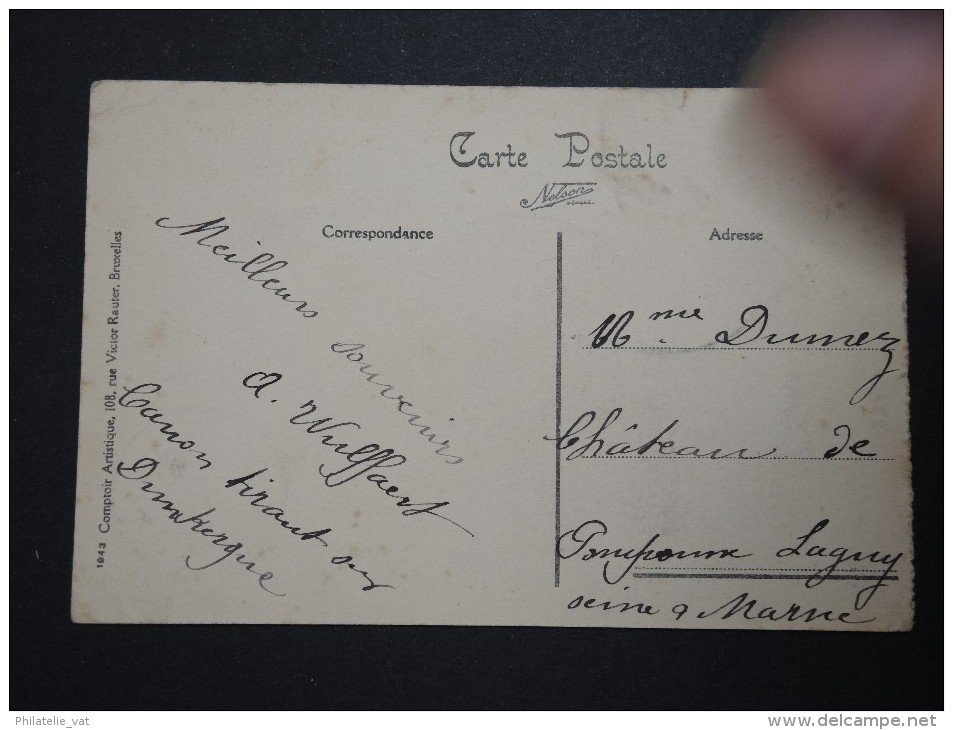 Carte Postale
Nelson
Correspondance
Adresse
Meilleurs souvenirs
A. Wulffaert
Canon tirant sur
Dunkerque
Mme Dumez
Château de
Pomponne Lagny
Seine & Marne
1943 Comptoir Artistique, 108, rue Victor Rauter, Bruxelles
Philatelie_vat
www.delcampe.net